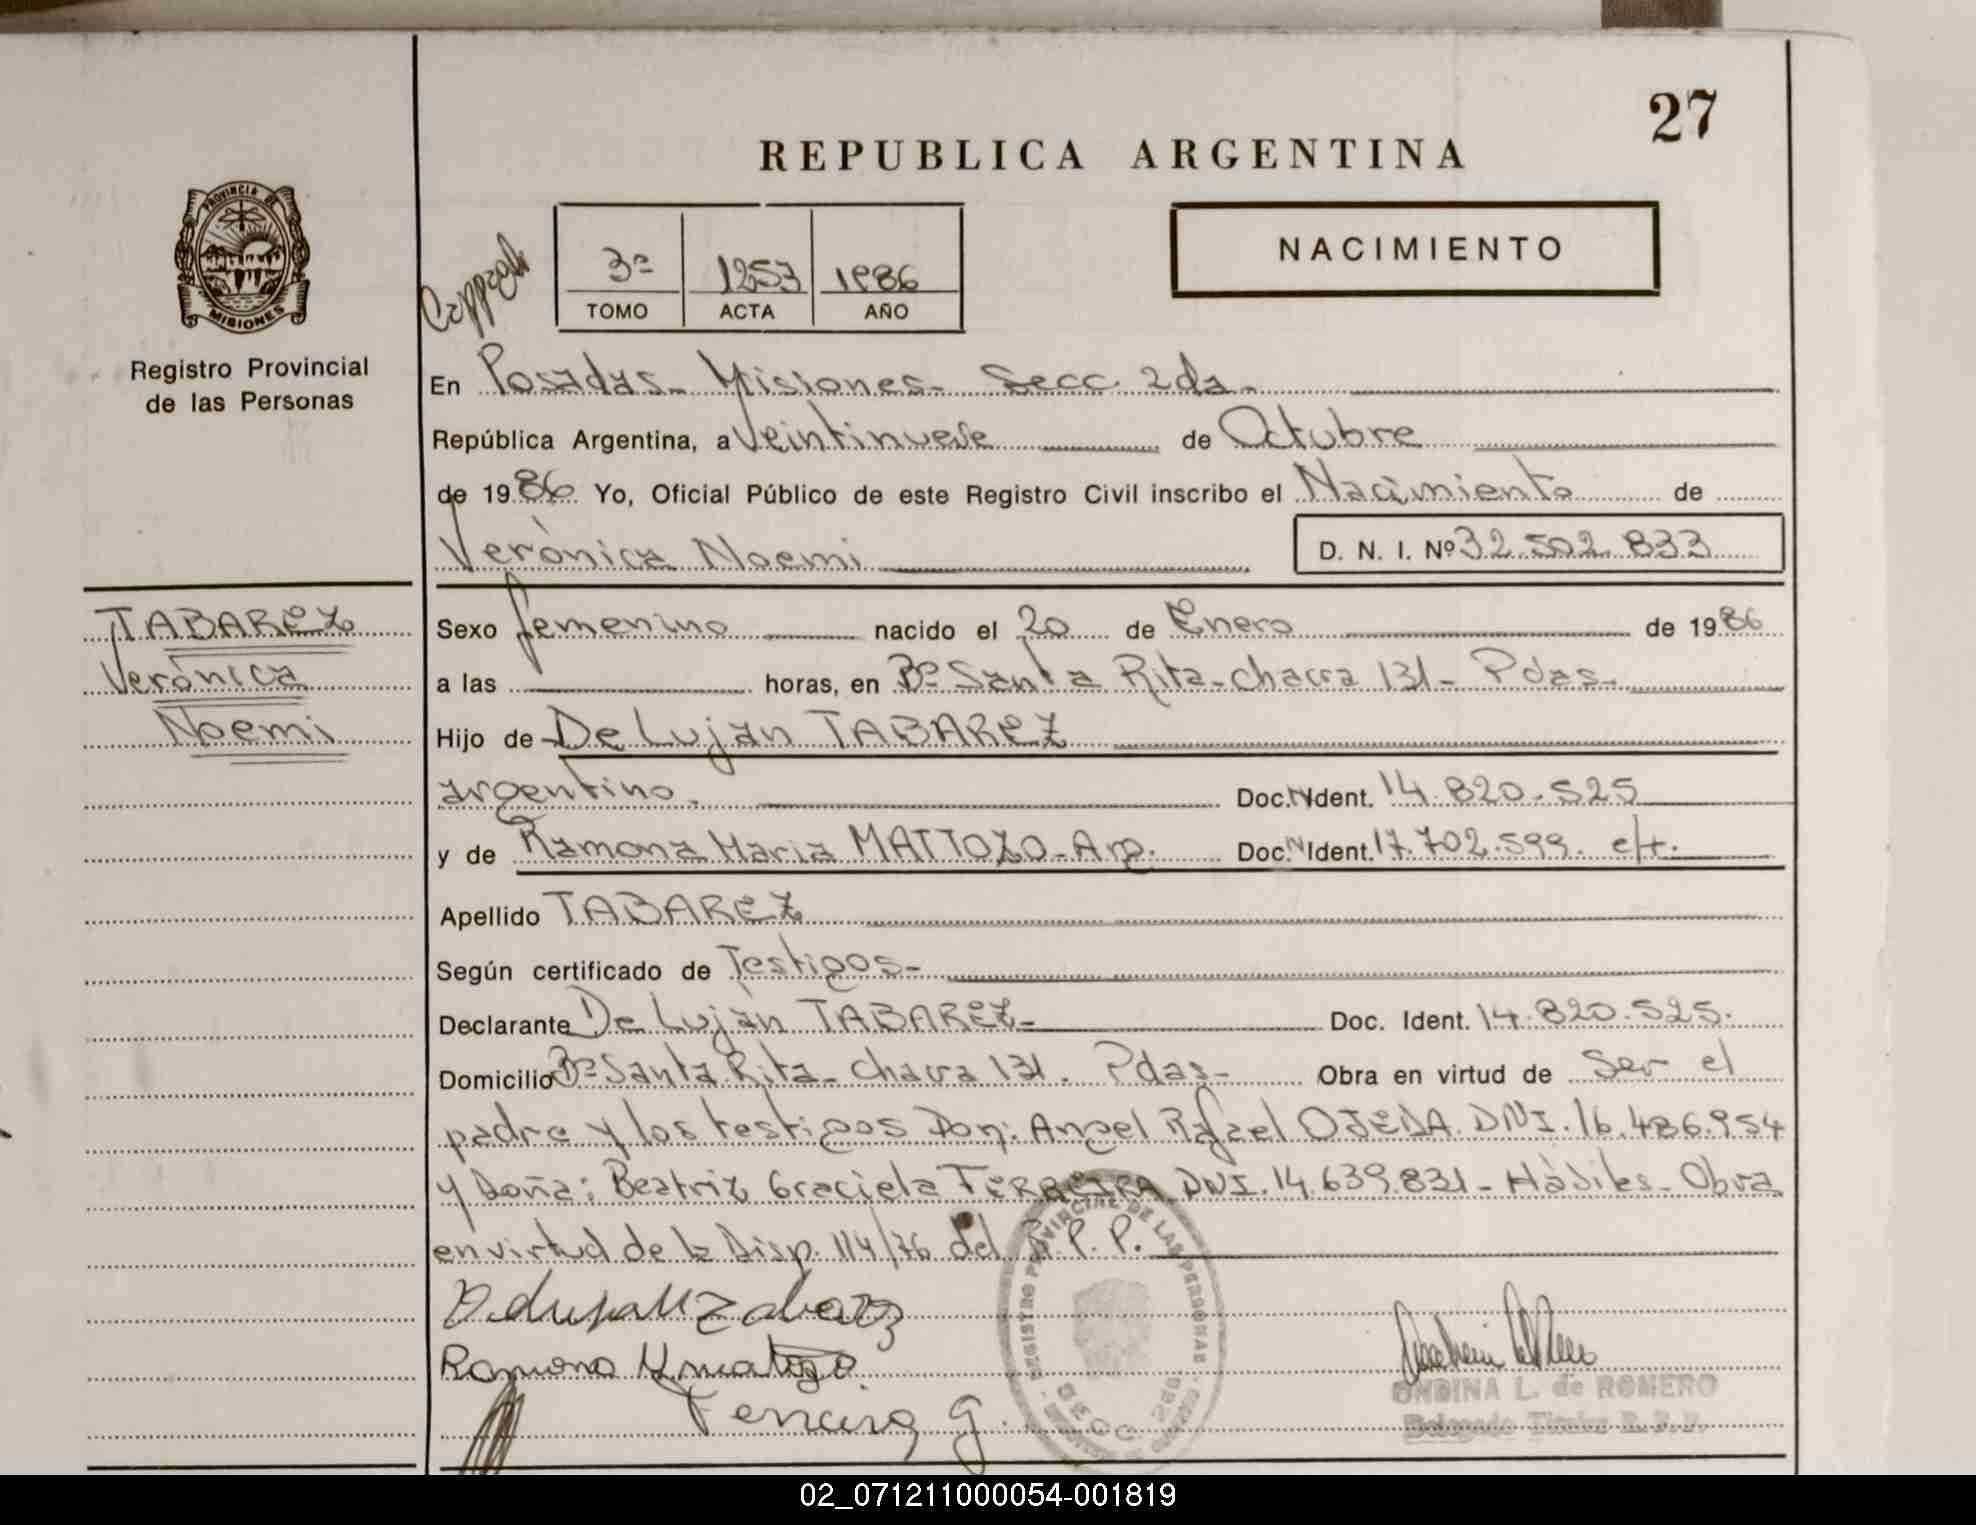 27
REPUBLICA ARGENTINA
PROVINCIA DE
MISIONES
Registro Provincial
de las Personas
3ª 1253 1986
TOMO ACTA AÑO
NACIMIENTO
En Posadas - Misiones - Secc. 2da -
República Argentina, a Veintinueve de Octubre
de 1986 Yo, Oficial Público de este Registro Civil inscribo el Nacimiento de
Verònica Noemi D. N. I. Nº 32.502.833
TABAREZ
Verònica
Noemi
Sexo femenino nacido el 20 de Enero de 1986
a las horas, en Bº Santa Rita - chacra 131 - Pdas -
Hijo de De Lujàn TABAREZ
argentino. Doc. N Ident. 14.820.525
y de Ramona Maria MATTOZO - Arg. Doc. N Ident. 17.702.599. c/t.
Apellido TABAREZ
Según certificado de Testigos -
Declarante De Lujàn TABAREZ - Doc. Ident. 14.820.525.
Domicilio Bº Santa Rita - chacra 131. Pdas - Obra en virtud de Ser el
padre y los testigos Don: Angel Rafael OJEDA DNI. 16.486.954
y Doña: Beatriz Graciela FERREIRA DNI. 14.639.831 - Hàbiles - Obra
en virtud de la Disp. 114/76 del R. P. P.
REGISTRO PROVINCIAL DE LAS PERSONAS
SECC. 2da
Ramona M Matozo
Ferreira g.
ONDINA L. de ROMERO
Delegado Titular R. P. P.
02_071211000054-001819